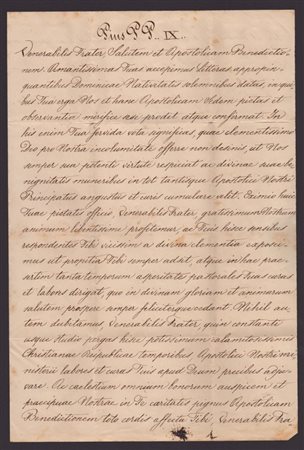 Pius P.P. IX.
Venerabilis Frater, Salutem et Apostolicam Benedictio-
nem. Amantissimas Tuas accepimus Litteras, appropin-
quantibus Dominicae Nativitatis solemnibus datas, in qui-
bus Tua erga Nos et hanc Apostolicam Sedem pietas et
observantia mirifice se prodit atque confirmat. In
his enim Tua fervida vota significas, quae clementissimo
Deo pro Nostra incolumitate offerre non desinis, ut Nos
semper sua potenti virtute respiciat ac divinae suae be-
nignitatis muneribus in tot tantisque Apostolici Nostri
Principatus angustiis et curis cumulare velit. Eximio huic
Tuae pietatis officio, Venerabilis Frater, gratissimum Nostrum
animum libentissime profitemur, ac Tuis hisce sensibus
respondentes Tibi vicissim a divina clementia exposci-
mus ut propitia Tibi semper adsit, atque in hac prae-
sertim tanta temporum asperitate pastorales Tuas curas
et labores dirigat, quo in divinam gloriam et animarum
salutem prospere semper feliciterque cedant. Nihil au-
tem dubitamus Venerabilis Frater, quin constante
usque studio pergas hisce potissimum calamitosissimis
Christianae Reipublicae temporibus, Apostolici Nostri mi-
nisterii labores et curas Tuis apud Deum precibus adju-
vare. Ac caelestium omnium bonorum auspicem et
praecipuae Nostrae in Te caritatis pignus Apostolicam
Benedictionem toto cordis affectu Tibi, Venerabilis Fra